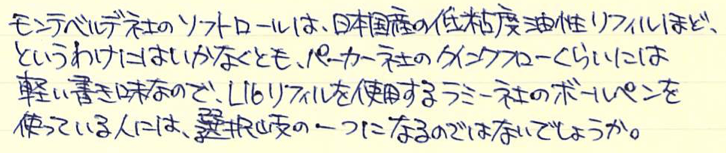 モンテベルデ社のソフトロールは、日本国産の低粘度油性リフィルほど、
というわけにはいかなくとも、パーカー社のクインクフローくらいには
軽い書き味なので、L16リフィルを使用するラミー社のボールペンを
使っている人には、選択肢の一つになるのではないでしょうか。